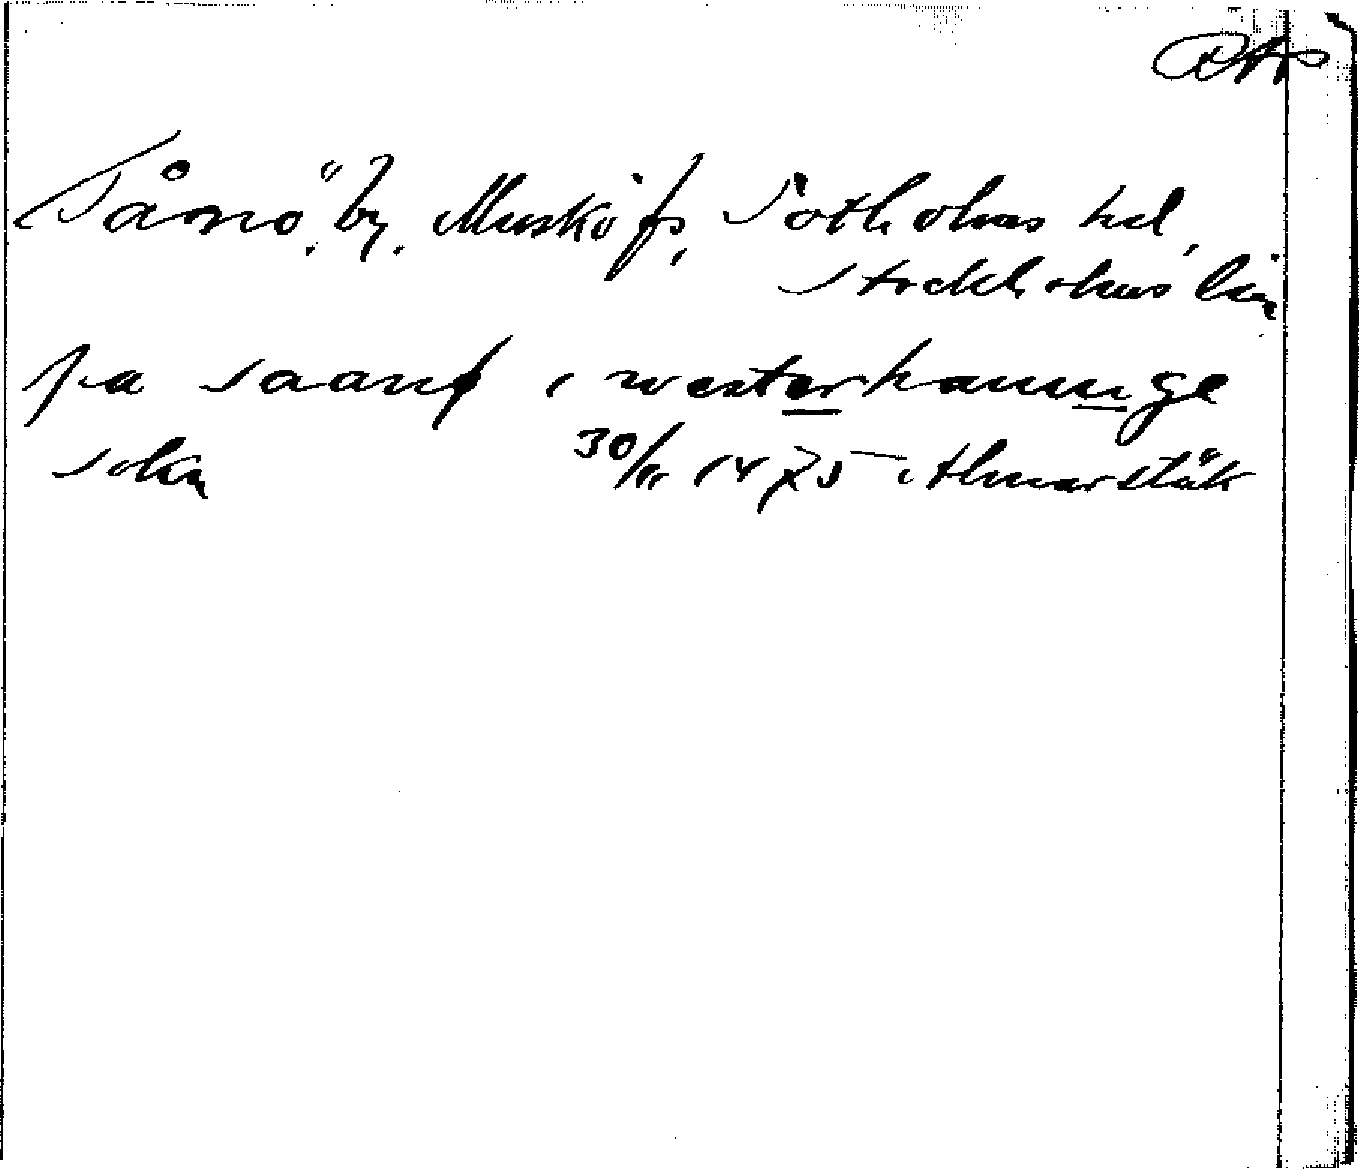 Sånö, by. Muskö fs, Sotholms hd,
Stockholms län
pa saanø i westerhaninge
sokn 30/11 1475 Almarstäk